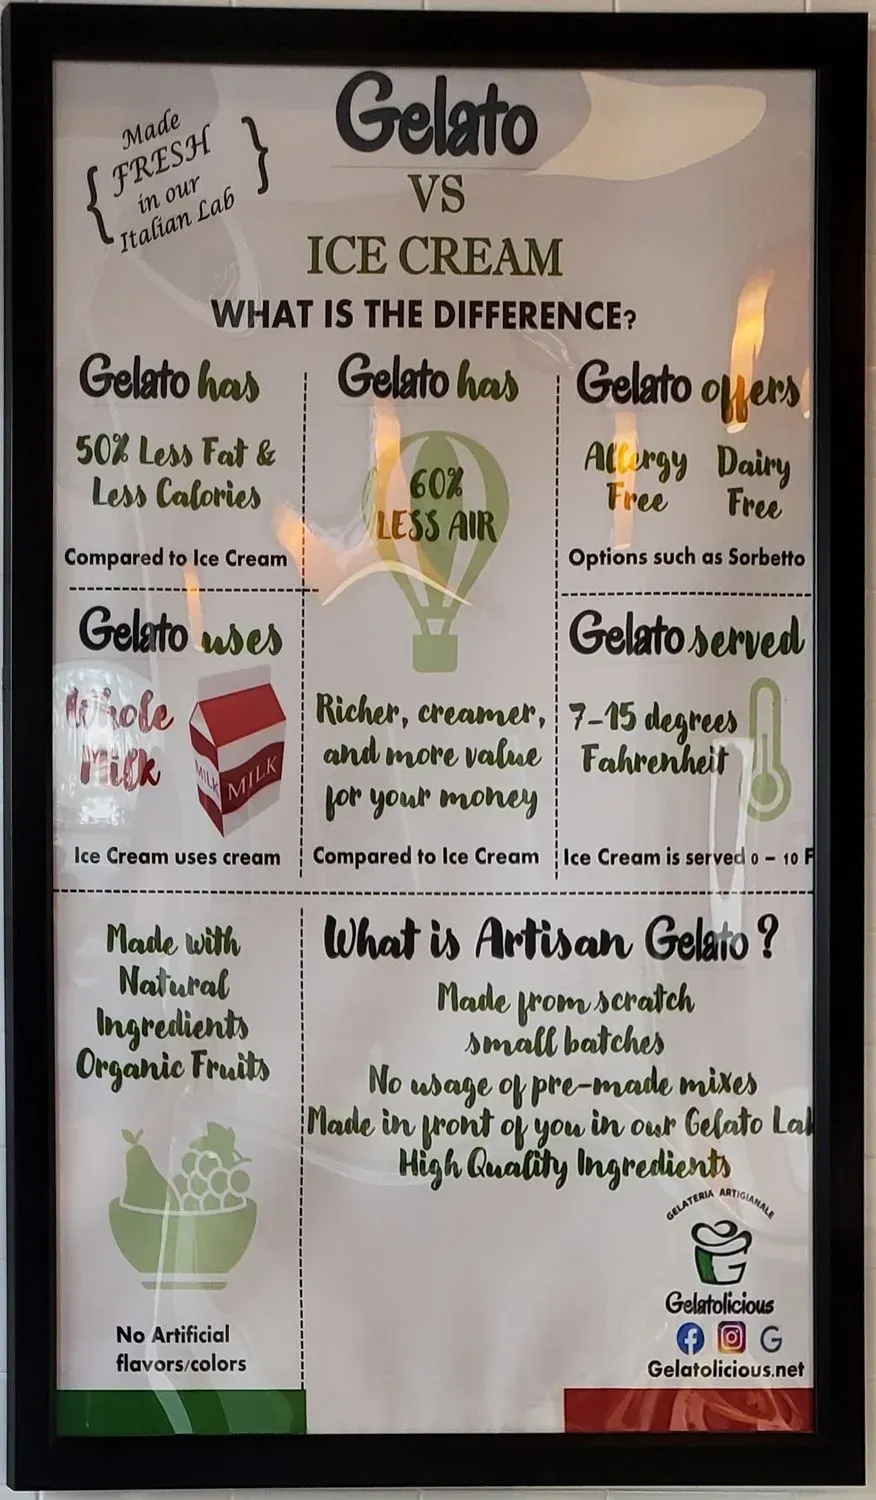 Made
FRESH
in our
Italian Lab
Gelato
VS
ICE CREAM
WHAT IS THE DIFFERENCE?
Gelato has
50% Less Fat &
Less Calories
Compared to Ice Cream
Gelato has
60%
LESS AIR
Richer, creamer,
and more value
for your money
Compared to Ice Cream
Gelato offers
Allergy
Free
Dairy
Free
Options such as Sorbetto
Gelato uses
Whole
Milk
MILK
MILK
Ice Cream uses cream
Gelato served
7-15 degrees
Fahrenheit
Ice Cream is served 0 - 10 F
Made with
Natural
Ingredients
Organic Fruits
No Artificial
flavors/colors
What is Artisan Gelato?
Made from scratch
small batches
No usage of pre-made mixes
Made in front of you in our Gelato Lab
High Quality Ingredients
GELATERIA ARTIGIANALE
G
Gelatolicious
f
G
Gelatolicious.net